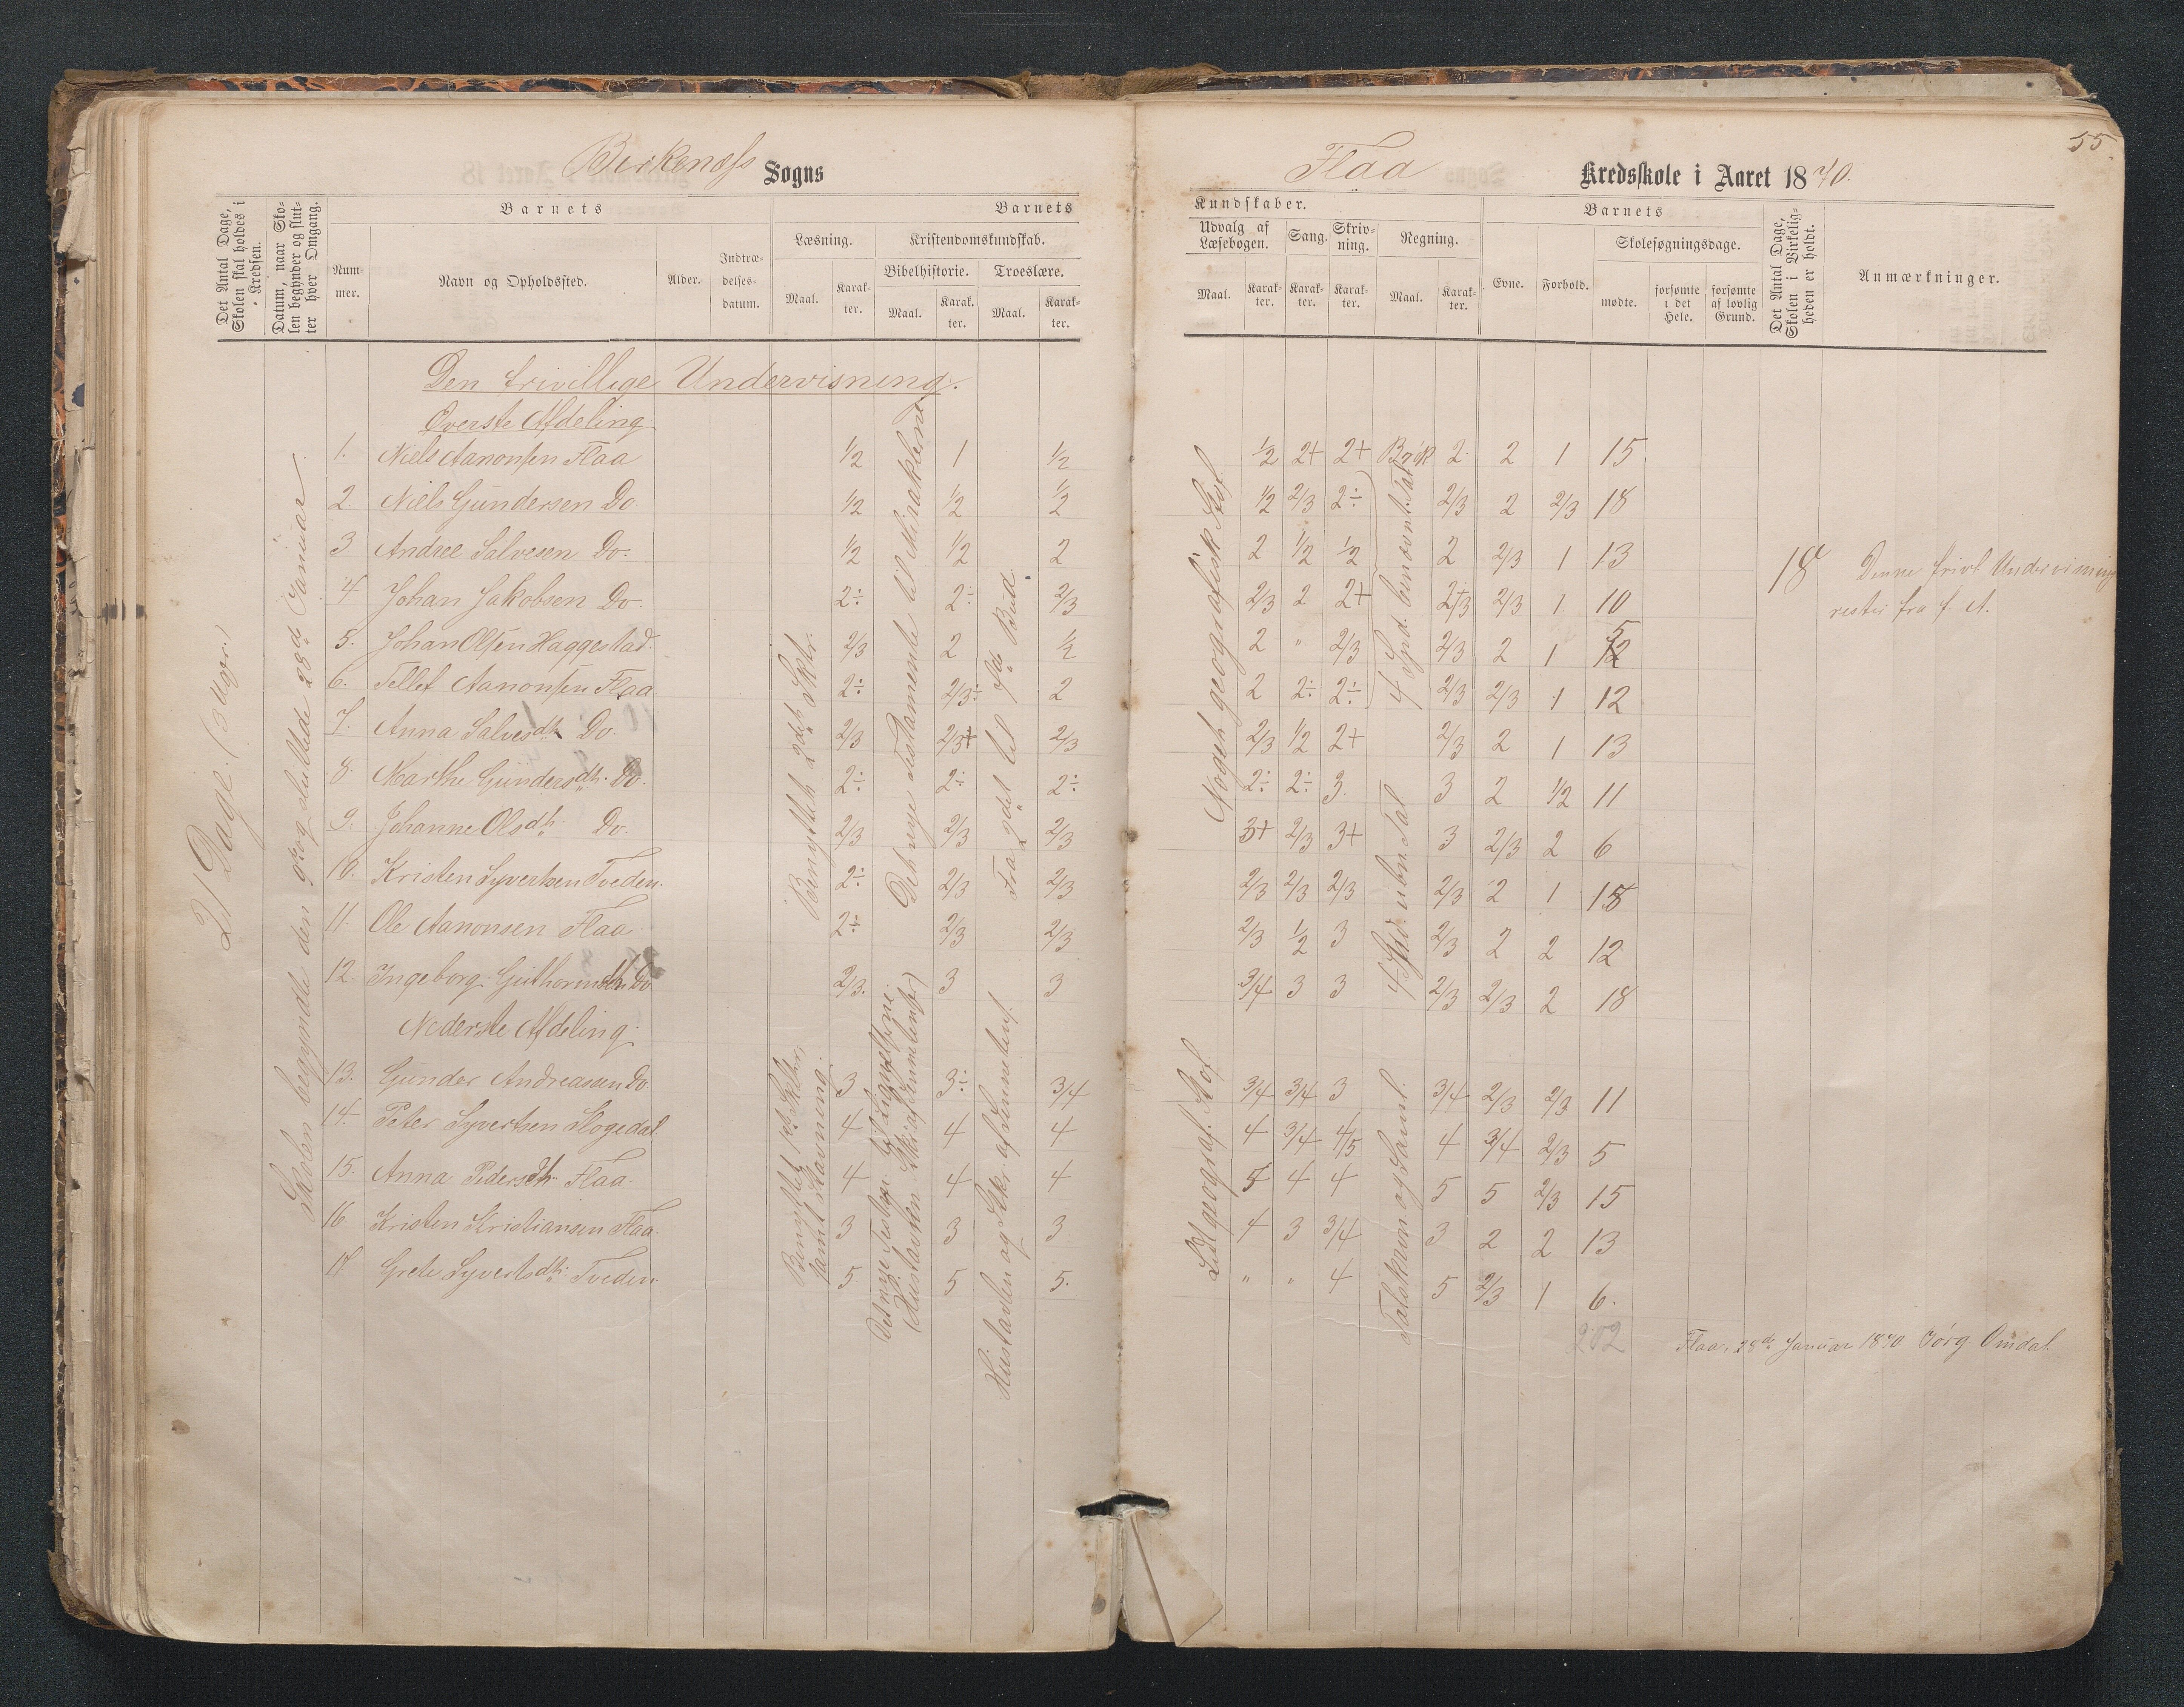 55.
Birkenæss Sogns
Flaa Kredsskole i Aaret 1870.
Det Antal Dage, Skolen skal holdes i Kredsen.
Datum, naar Skolen begynder og slutter hver Omgang.
Barnets
Nummer.
Navn og Opholdssted.
Alder.
Indtrædelsesdatum.
Barnets
Læsning.
Kristendomskundskab.
Bibelhistorie.
Troeslære.
Maal. Karakter. Maal. Karakter. Maal. Karakter.
Kundskaber.
Udvalg af Læsebogen. Sang. Skrivning. Regning.
Maal. Karakter. Karakter. Karakter. Maal. Karakter.
Barnets
Evne. Forhold.
Skolesøgningsdage.
mødte. forsømte i det Hele. forsømte af lovlig Grund.
Det Antal Dage, Skolen i Virkeligheden er holdt.
Anmærkninger.
21 Dage. (3 Uger.)
Skolen begyndte den 9de og sluttede 28de Januar.
Den frivillige Undervisning.
Øverste Afdeling
1. Niels Aanonsen Flaa 1/2 1 1/2 1/2 2+ 2+ Brøk 2 2 1 15.
2. Niels Gundersen Do. 1/2 1/2 1/2 1/2 2/3 2÷ 2/3 2 2/3 18
3. Andree Salvesen Do. 1/2 1/2 2 2 1/2 1/2 2 2/3 1 13
4. Johan Jakobsen Do. 2÷ 2÷ 2/3 2/3 2 2+ 2/3 2/3 1 10
5. Johan Olsen Haggestad. 2/3 2 1/2 2 " 2/3 2/3 2 1 12
6. Tellef Aanonsen Flaa 2÷ 2/3÷ 2 2 2÷ 2÷ 2/3 2/3 1 12
7. Anna Salvesdtr Do. 2/3 2/3+ 2/3 2/3 1/2 2+ 2/3 2 1 13
8. Marthe Gundersdtr. Do. 2÷ 2÷ 2÷ 2÷ 2÷ 3. 3 2 1/2 11
9. Johanne Olsdtr. Do. 2/3 2/3 2/3 3+ 2/3 3+ 3 2/3 2 6
10. Kristen Syvertsen Tveden. 2÷ 2/3 2/3 2/3 2/3 2/3 2/3 2 1 18
11. Ole Aanonsen Flaa 2÷ 2/3 2/3 2/3 1/2 3 2/3 2 2 12
12. Ingeborg Guthormsdtr Do 2/3. 3 3 3/4 3 3 2/3 2/3 2 18
Benyttet 2det Sktr.
Det nye Testamente til Miraklerne
Fra 2det til 9de Bud.
Noget geografisk Stof.
4 Spd. benævnt Tal
4 Spd. ubn. Tal.
18 Denne frivl. Undervisning
rester fra f. A.
Nederste Afdeling.
13. Gunder Andreasen Do. 3 3÷ 3/4 3/4 3/4 3 3/4 2/3 2/3 11
14. Peter Syvertsen Mogedal. 4 4 4 4 3/4 4/5 4 3/4 2/3 5
15. Anna Pedersdtr Flaa. 4 4 4 5 4 4 5 5 2/3 15
16. Kristen Kristiansen Flaa. 3 3 3 4 3 3/4 3 2 2 13
17 Grete Syvertsdtr. Tveden. 5 5 5. " " 4 5 2/3 1 6.
Benyttet 1ste Sktr. samt Stavning.
Det nye Testm. til Lignelserne
(Hustavlen Stkr. af Hukommelsen)
Hustavlen og Stkr. af
Lidt geograf. Stof.
Talskriven og Saml.
202
Flaa, 28de Januar 1870. Jörg. Omdal.